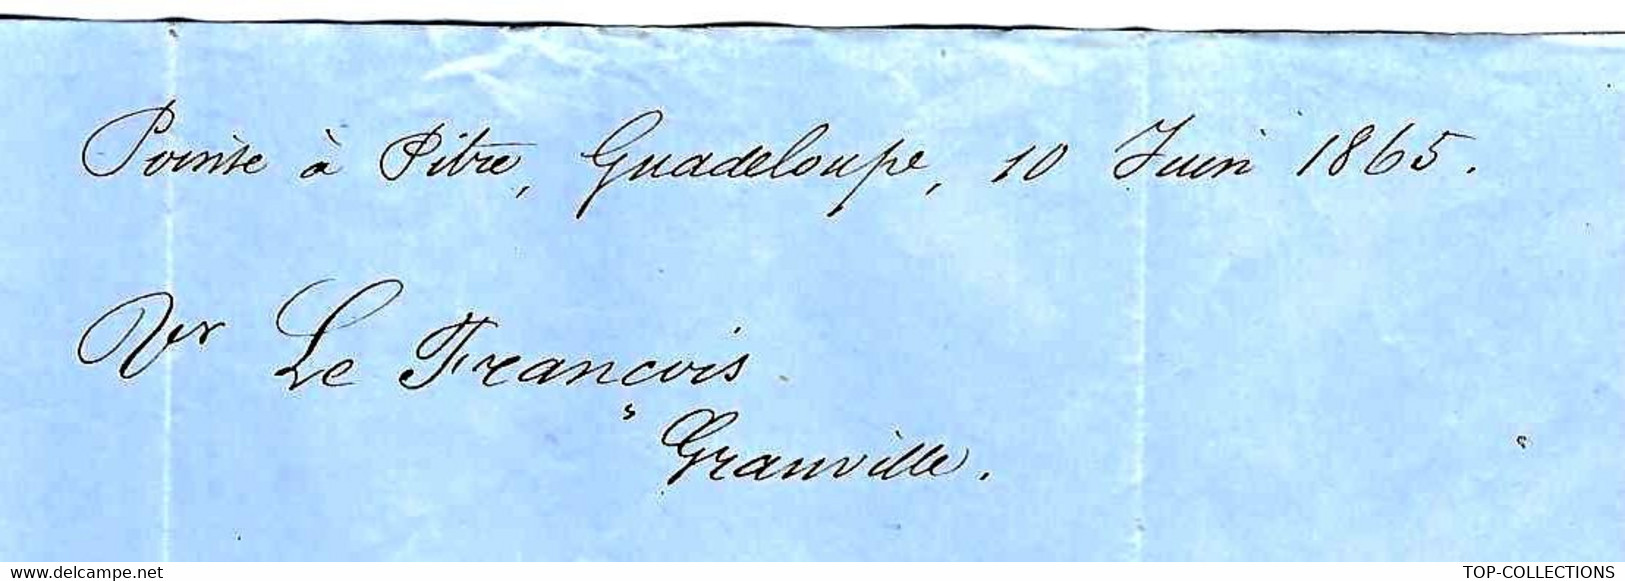 Pointe à Pitre, Guadeloupe, 10 Juin 1865.
Le François
Granville.
www.delcampe.net
TOP-COLLECTIONS